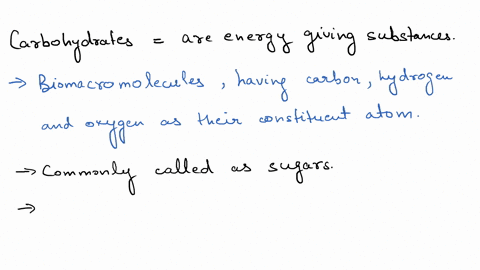 Carbohydrates = are energy giving substances.
→ Biomacromolecules, having carbon, hydrogen
and oxygen as their constituent atom.
→ Commonly called as sugars.
→